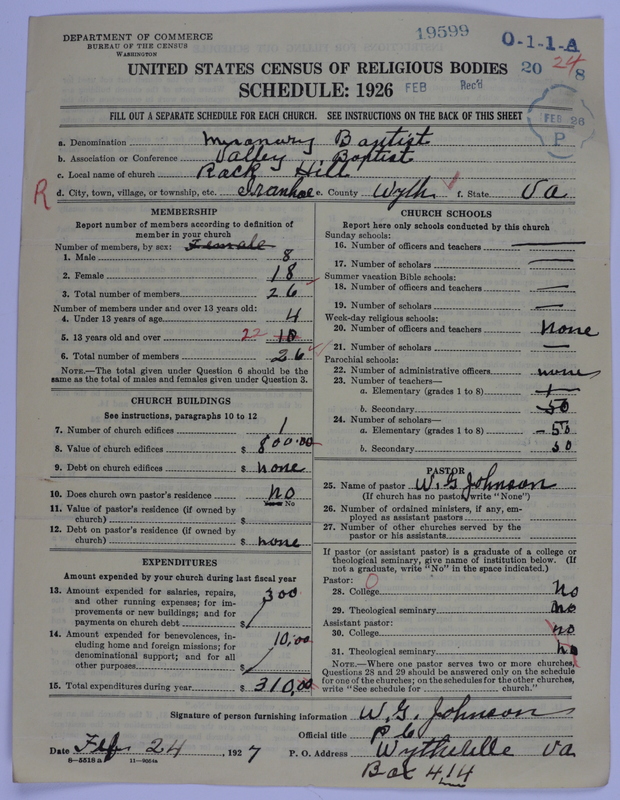 DEPARTMENT OF COMMERCE
BUREAU OF THE CENSUS
WASHINGTON
19599
O-1-1-A
UNITED STATES CENSUS OF RELIGIOUS BODIES
20 24 8
SCHEDULE: 1926
FEB Rec'd
FEB 26
P
FILL OUT A SEPARATE SCHEDULE FOR EACH CHURCH. SEE INSTRUCTIONS ON THE BACK OF THIS SHEET
a. Denomination Baptist
b. Association or Conference Valley Baptist
c. Local name of church Rack Hill
R
d. City, town, village, or township, etc. Ivanhoe e. County Wyth f. State Va
MEMBERSHIP
Report number of members according to definition of
member in your church
Number of members, by sex: Female
1. Male 8
2. Female 18
3. Total number of members 26
Number of members under and over 13 years old:
4. Under 13 years of age 4
5. 13 years old and over 22 18
6. Total number of members 26
NOTE.—The total given under Question 6 should be the
same as the total of males and females given under Question 3.
CHURCH BUILDINGS
See instructions, paragraphs 10 to 12
7. Number of church edifices 1
8. Value of church edifices $ 800.00
9. Debt on church edifices $ none
10. Does church own pastor's residence no
No
11. Value of pastor's residence (if owned by
church) $
12. Debt on pastor's residence (if owned by
church) $ none
EXPENDITURES
Amount expended by your church during last fiscal year
13. Amount expended for salaries, repairs, 300
and other running expenses; for im-
provements or new buildings; and for
payments on church debt $
14. Amount expended for benevolences, in- 10,00
cluding home and foreign missions; for
denominational support; and for all
other purposes $
15. Total expenditures during year $ 310,00
CHURCH SCHOOLS
Report here only schools conducted by this church
Sunday schools:
16. Number of officers and teachers
17. Number of scholars
Summer vacation Bible schools:
18. Number of officers and teachers
19. Number of scholars
Week-day religious schools:
20. Number of officers and teachers None
21. Number of scholars
Parochial schools:
22. Number of administrative officers none
23. Number of teachers—
a. Elementary (grades 1 to 8) 1
b. Secondary 50
24. Number of scholars—
a. Elementary (grades 1 to 8) 50
b. Secondary 50
PASTOR
25. Name of pastor W. G. Johnson
(If church has no pastor, write "None")
26. Number of ordained ministers, if any, em-
ployed as assistant pastors
27. Number of other churches served by the
pastor or his assistants
If pastor (or assistant pastor) is a graduate of a college or
theological seminary, give name of institution below. (If
not a graduate, write "No" in the space indicated.)
Pastor: O
28. College No
29. Theological seminary no
Assistant pastor:
30. College no
31. Theological seminary no
NOTE.—Where one pastor serves two or more churches,
Questions 28 and 29 should be answered only on the schedule
for one of the churches; on the schedules for the other churches,
write "See schedule for church."
Signature of person furnishing information W. G. Johnson
Official title
Date Feb 24, 1927 P. O. Address Wytheville Va
8—5518 a 11—9054a
Box 414